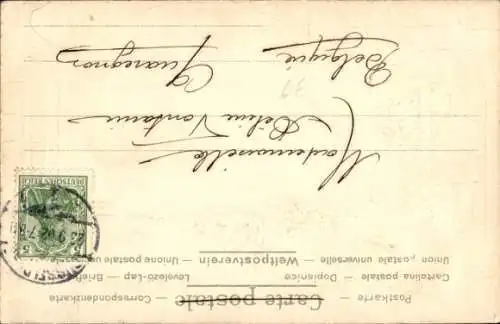 Carte postale
Postkarte — Correspondenzkarte
Cartolina postale — Dopisnice — Levelező-Lap — Briefk
Union postale universelle — Weltpostverein — Unione postale
DEUTSCHES REICH
5
Mademoiselle
Quaregnon
Belgique